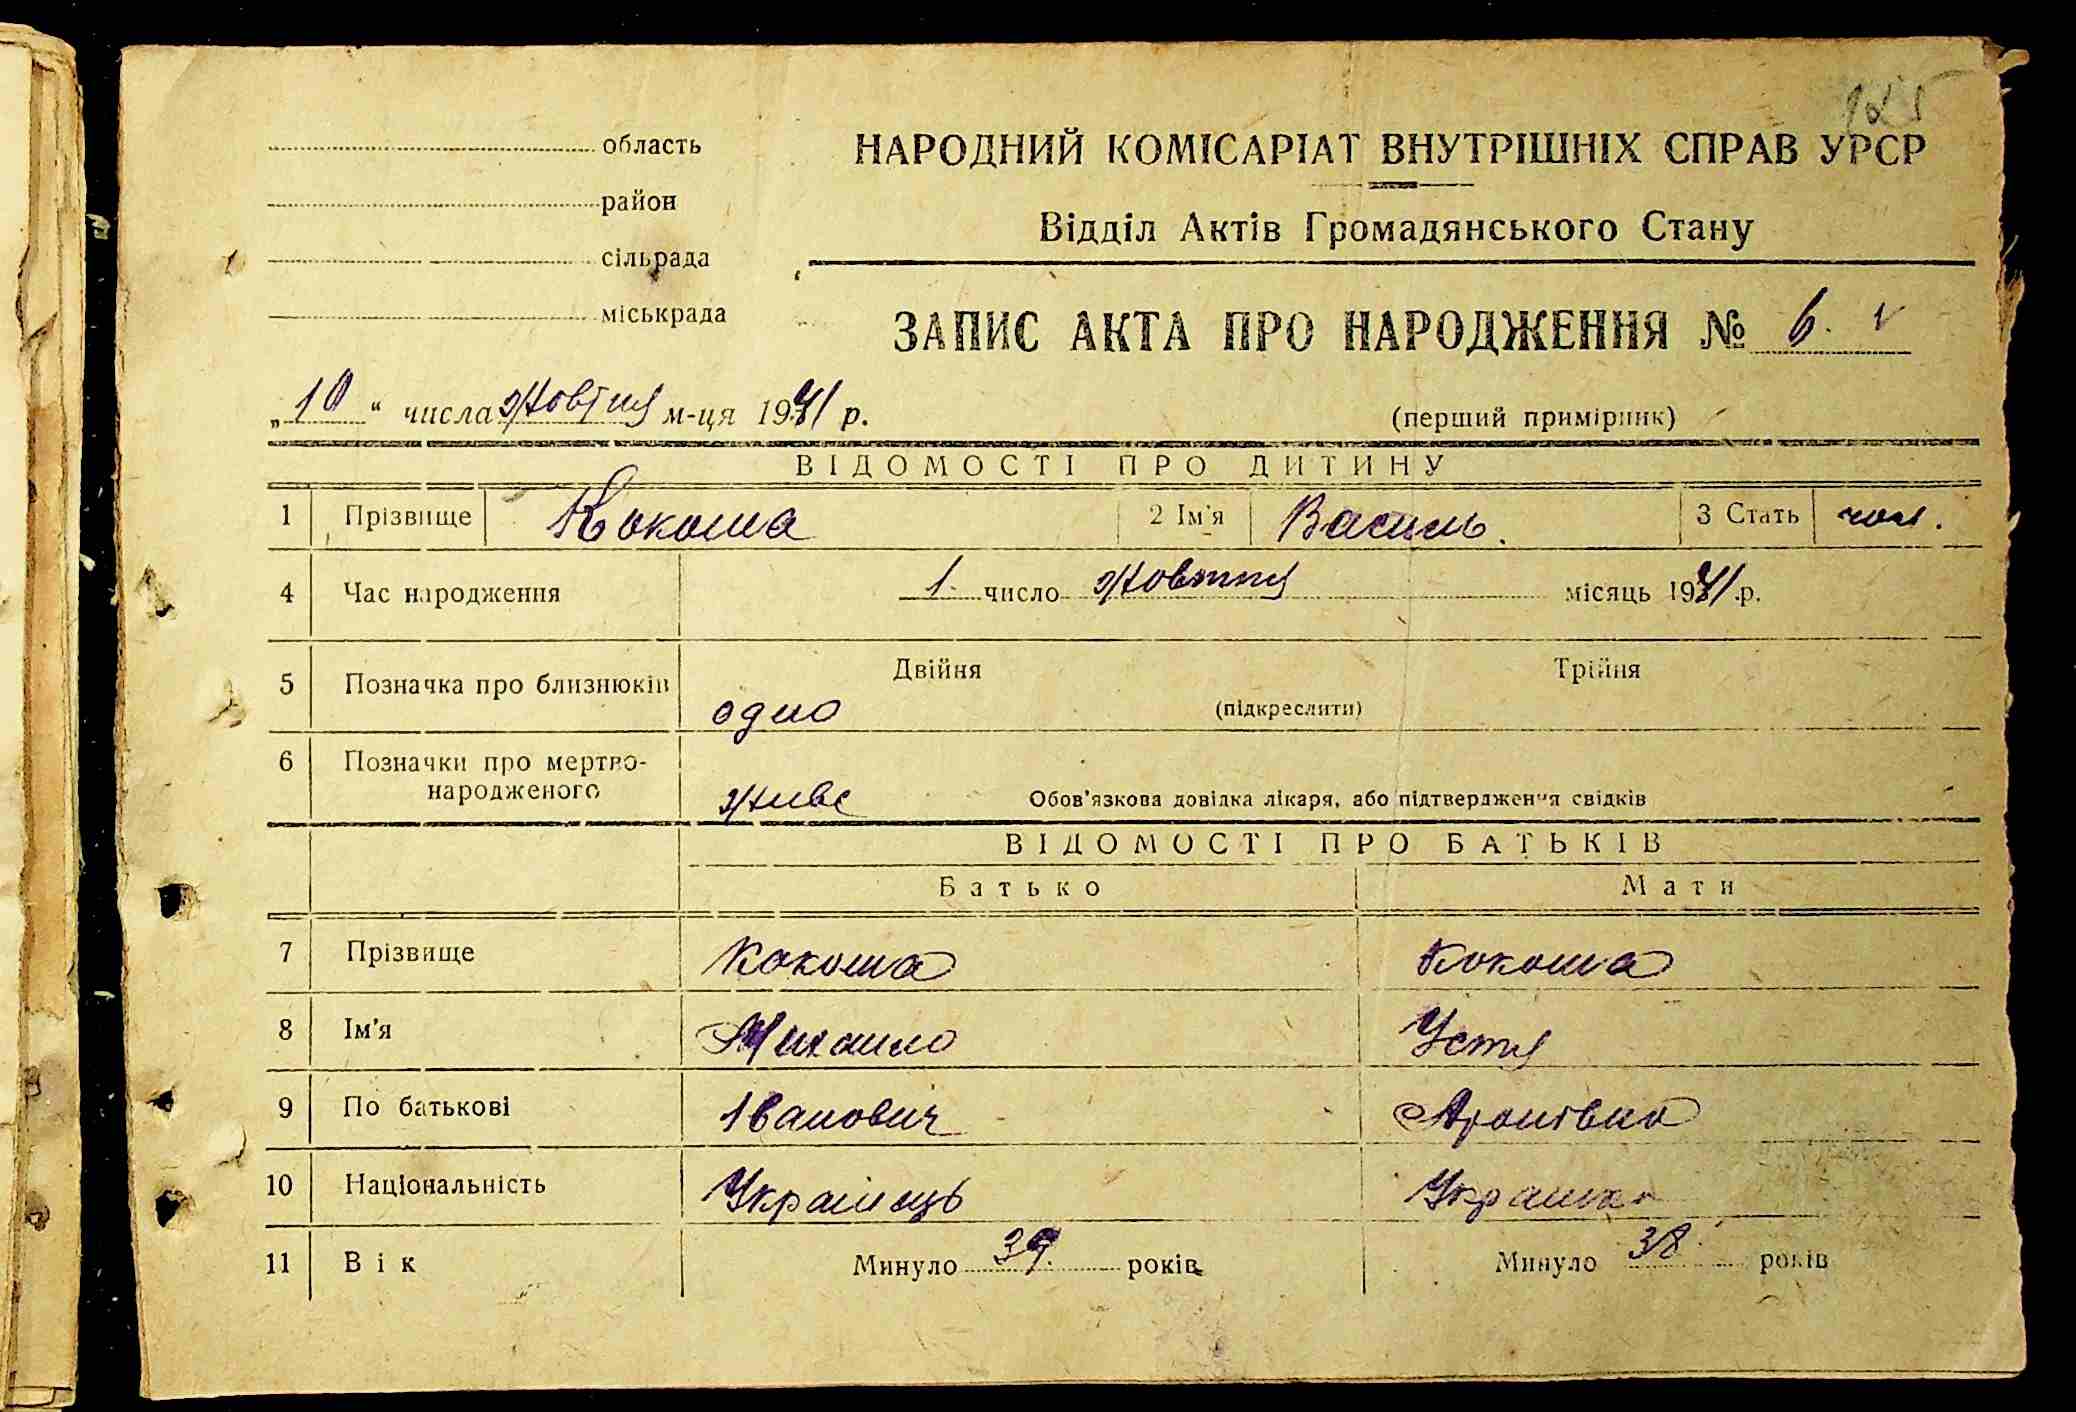 125
область
НАРОДНИЙ КОМІСАРІАТ ВНУТРІШНІХ СПРАВ УРСР
район
Відділ Актів Громадянського Стану
сільрада
міськрада
ЗАПИС АКТА ПРО НАРОДЖЕННЯ № 6.
„10“ числа жовтня м-ця 1941 р.
(перший примірник)
ВІДОМОСТІ ПРО ДИТИНУ
1 Прізвище Кокоша 2 Ім'я Василь. 3 Стать чол.
4 Час народження 1 число жовтня місяць 1941 р.
Двійня Трійня
5 Позначка про близнюків одно (підкреслити)
6 Позначки про мертво-
народженого живе Обов'язкова довідка лікаря, або підтвердження свідків
ВІДОМОСТІ ПРО БАТЬКІВ
Батько Мати
7 Прізвище Кокоша Кокоша
8 Ім'я Михайло Устя
9 По батькові Іванович
10 Національність Українець Українка
11 Вік Минуло 39. років Минуло 38. років